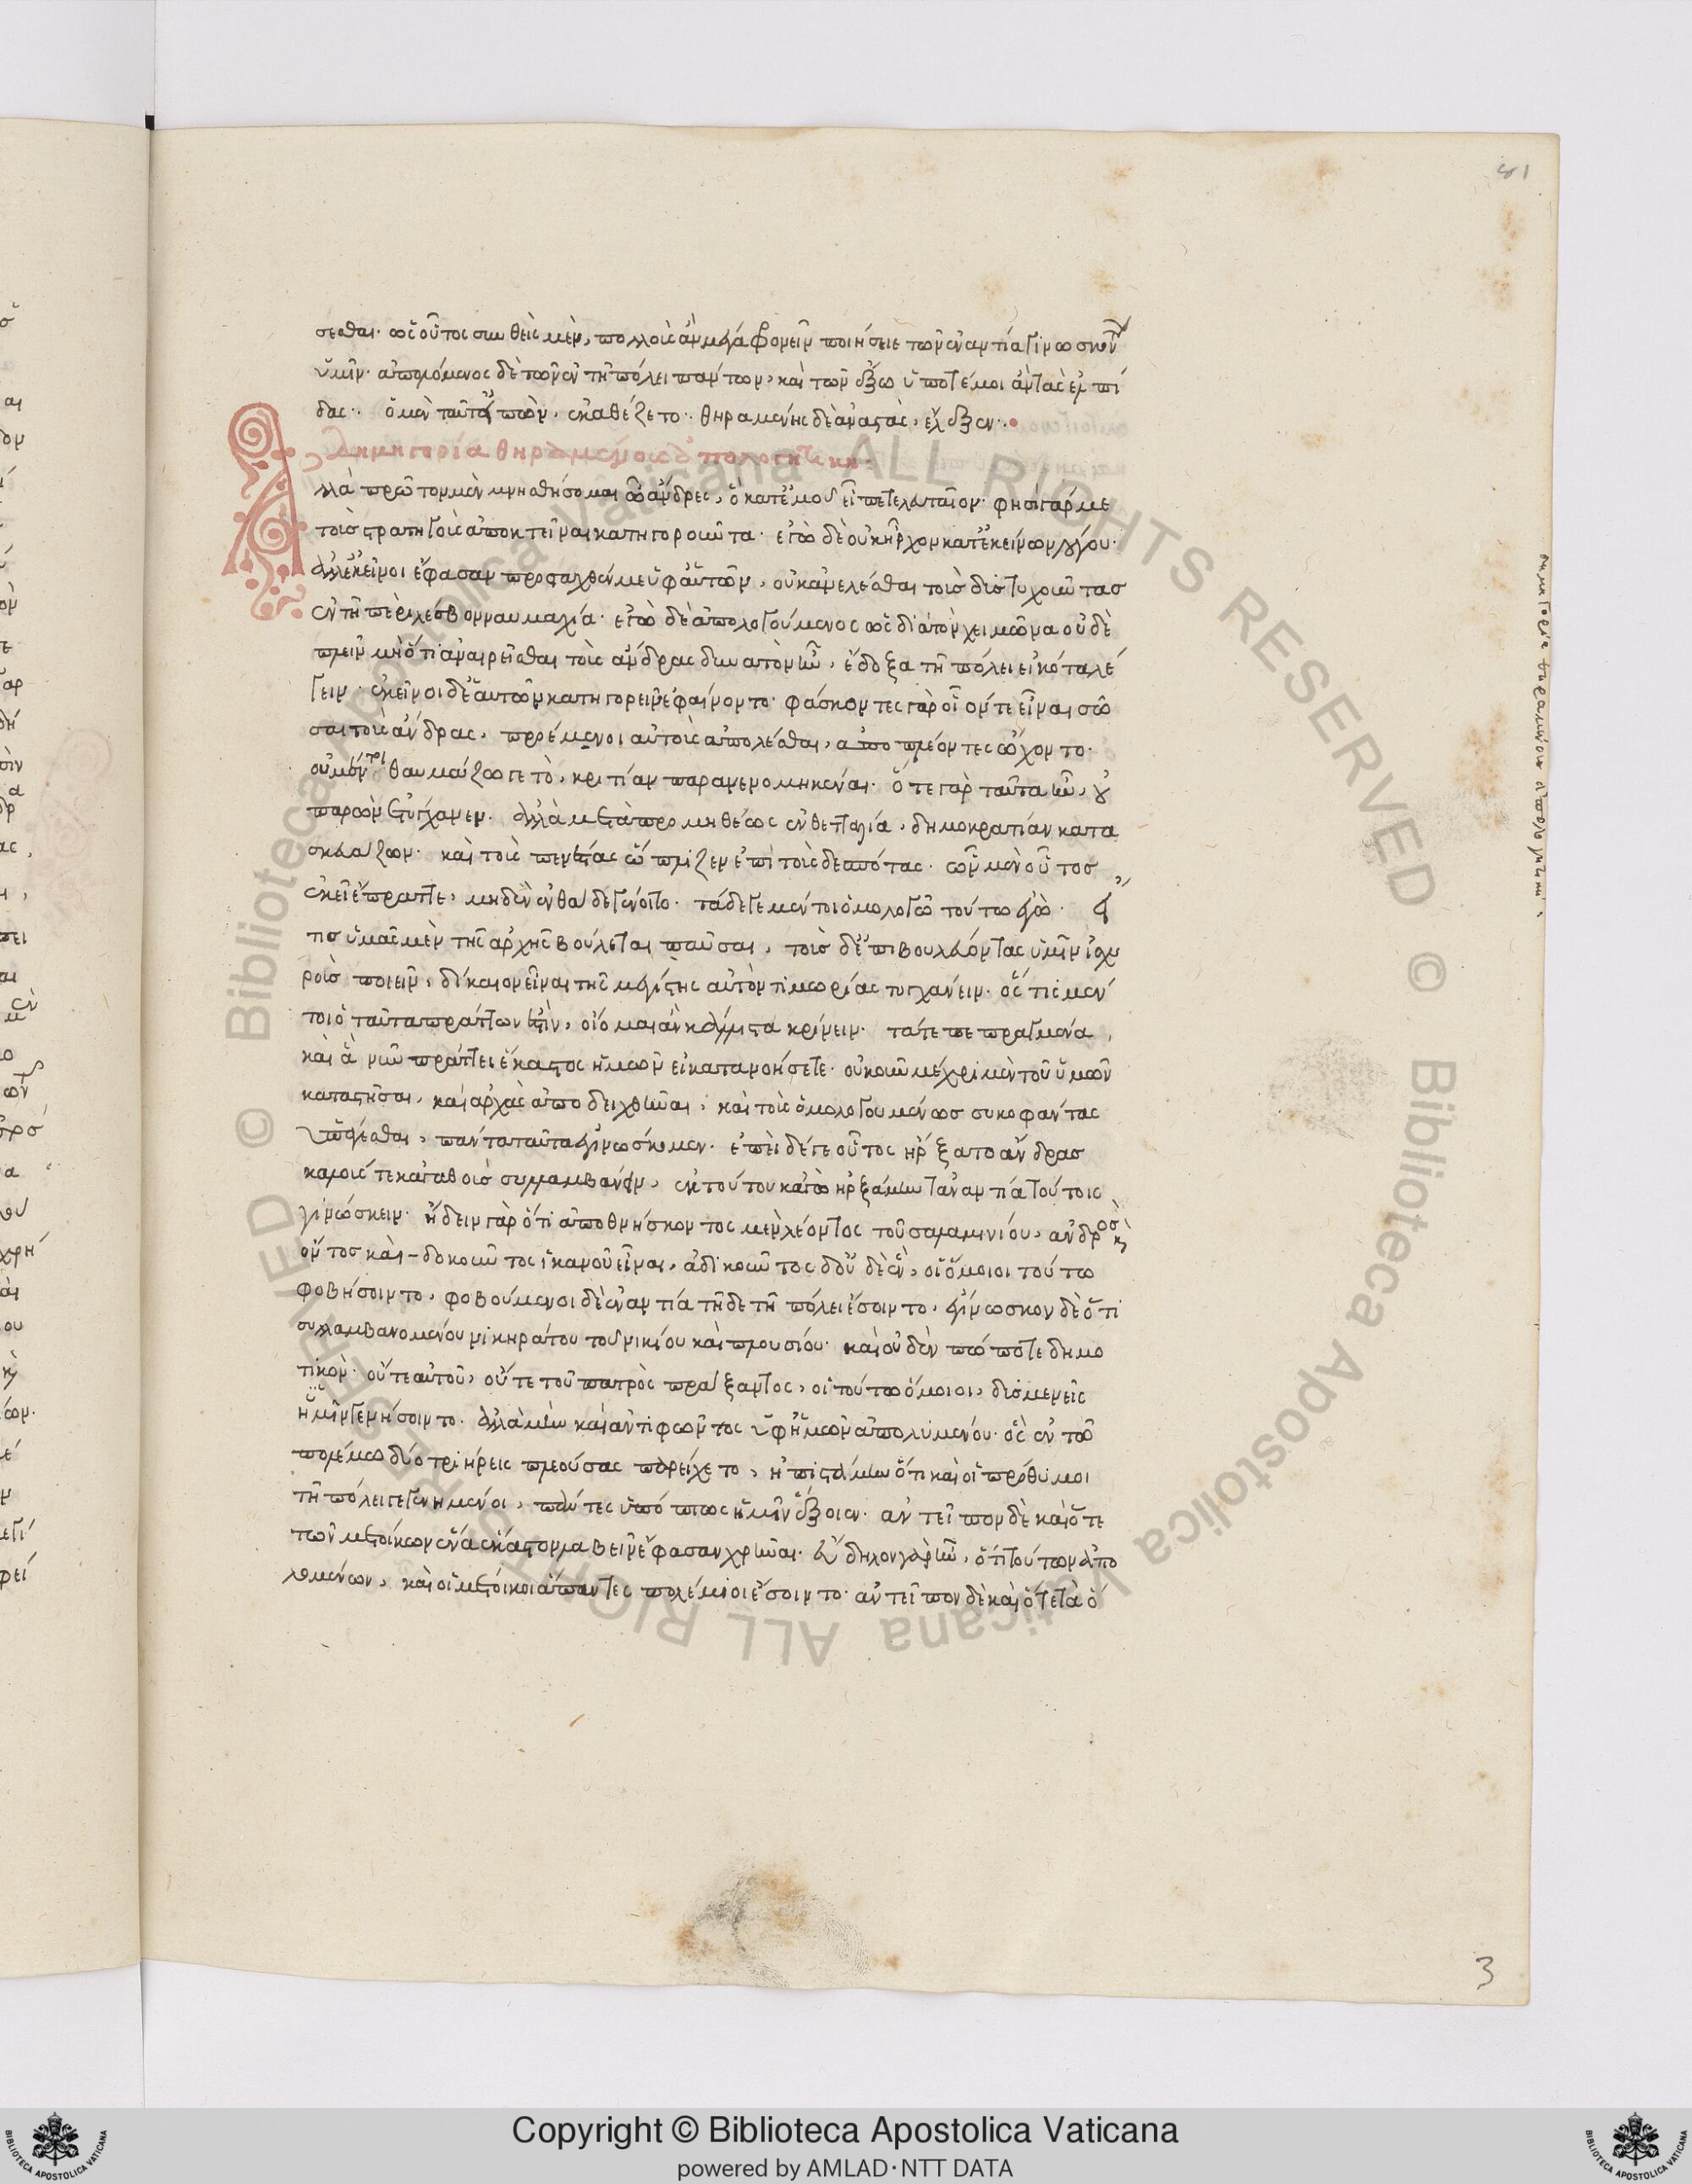 81
σεσθαι· ὡς οὗτος σωθεὶς μὲν, πολλοὺς ἂν μέγα φρονεῖν ποιήσειε τῶν ἐναντία γινωσκόντ
ὑμῖν· ἀπολόμενος δὲ τῶν ἐν τῇ πόλει πάντων, καὶ τῶν ἔξω ὑποτέμοι ἂν τὰς ἐλπί
δας·. ὁ μὲν ταῦτ' εἰπὼν, ἐκαθέζετο·. θηραμένης δὲ ἀναστὰς, ἔλεξεν·.
δημηγορία θηραμένους ἀπολογητική·
Ἀλλὰ πρῶτον μὲν μνησθήσομαι ὦ ἄνδρες, ὃ κατ' ἐμοῦ εἶπε τελευταῖον· φησὶ γάρ με
τοὺς στρατηγοὺς ἀποκτεῖναι κατηγοροῦντα· ἐγὼ δὲ οὐκ ἦρχον κατ' ἐκείνων λόγου·
ἀλλ' ἐκεῖνοι ἔφασαν προσταχθέν με ὑφ' αὑτῶν, οὐκ ἀνελέσθαι τοὺς δυστυχοῦντας
ἐν τῇ περὶ λέσβον ναυμαχία· ἐγὼ δὲ ἀπολογούμενος ὡς διὰ τὸν χειμῶνα οὐδὲ
πλεῖν μὴ ὅτι ἀναιρεῖσθαι τοὺς ἄνδρας δυνατὸν ἦν, ἔδοξα τῇ πόλει εἰκότα λέ
γειν· ἐκεῖνοι δ' ἑαυτῶν κατηγορεῖν ἐφαίνοντο· φάσκοντες γὰρ οἷόν τε εἶναι σῶ
σαι τοὺς ἄνδρας, προέμενοι αὐτοὺς ἀπολέσθαι, ἀποπλέοντες ᾤχοντο·
οὐ μέντοι θαυμάζω γε τὸ, κριτίαν παρανενομηκέναι· ὅτε γὰρ ταῦτα ἦν, οὐ
παρὼν ἐτύγχανεν· ἀλλὰ μετὰ προμηθέως ἐν θετταλία, δημοκρατίαν κατα
σκευάζων· καὶ τοὺς πενέστας ὥπλιζεν ἐπὶ τοὺς δεσπότας· ὧν μὲν οὗτος
ἐκεῖ ἔπραττε, μηδὲν ἐνθάδε γένοιτο· τάδε γε μέντοι ὁμολογῶ τούτω ἐγώ· εἴ
τις ὑμᾶς μὲν τῆς ἀρχῆς βούλεται παῦσαι, τοὺς δ' ἐπιβουλεύοντας ὑμῖν ἰσχυ
ροὺς ποιεῖν, δίκαιον εἶναι τῆς μεγίστης αὐτὸν τιμωρίας τυγχάνειν· ὅς τις μέν
τοι ὁ ταῦτα πράττων ἐστὶν, οἶομαι ἂν κάλλιστα κρίνειν· τά τε πεπραγμένα,
καὶ ἃ νῦν πράττει ἕκαστος ἡμῶν εἰ κατανοήσετε· οὐκοῦν μέχρι μὲν τοῦ ὑμῶν
καταστῆσαι, καὶ ἀρχὰς ἀποδειχθῆναι, καὶ τοὺς ὁμολογουμένως συκοφάντας
ὑπάγεσθαι, πάντα ταῦτα ἐγινώσκομεν· ἐπεὶ δέ γε οὗτος ἤρξατο ἄνδρας
καλούς τε κἀγαθοὺς συλλαμβάνειν, ἐκ τούτου κἀγὼ ἠρξάμην τἀναντία τούτοις
γινώσκειν· ᾔδειν γὰρ ὅτι ἀποθνήσκοντος μὲν λέοντος τοῦ σαλαμινίου, ἀνδρὸς καὶ
ὄντος καὶ - δοκοῦντος ἱκανοῦ εἶναι, ἀδικοῦντος δ' οὐδὲ ἓν, οἱ ὅμοιοι τούτω
φοβήσοιντο, φοβούμενοι δὲ ἐναντία τῇδε τῇ πόλει ἔσοιντο, ἐγίνωσκον δὲ ὅτι
συλλαμβανομένου νικηράτου τοῦ νικίου καὶ πλουσίου· καὶ οὐδὲν πώποτε δημο
τικὸν· οὔτε αὐτοῦ, οὔτε τοῦ πατρὸς πράξαντος, οἱ τούτω ὅμοιοι, δυσμενεῖς
ἡμῖν γενήσοιντο· ἀλλὰ μὴν καὶ ἀντιφῶντος ὑφ' ἡμῶν ἀπολλυμένου· ὃς ἐν τῶ
πολέμω δύο τριήρεις πλεούσας παρείχετο, ἠπιστάμην ὅτι καὶ οἱ πρόθυμοι
τῇ πόλει γεγενημένοι, πάντες ὑπόπτως ἡμῖν ἕξοιεν· ἀντεῖπον δὲ καὶ ὅτε
τῶν μετοίκων ἕνα ἕκαστον λαβεῖν ἔφασαν χρῆναι· εὔδηλον γὰρ ἦν, ὅτι τούτων ἀπο
λομένων, καὶ οἱ μέτοικοι ἅπαντες πολέμιοι ἔσοιντο· ἀντεῖπον δὲ καὶ ὅτε τὰ ὅ
δημηγορία θηραμένους ἀπολογητική
3
Copyright © Biblioteca Apostolica Vaticana
powered by AMLAD·NTT DATA